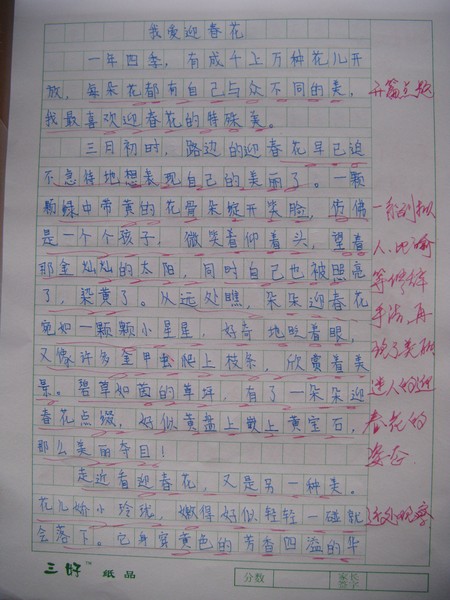 我爱迎春花
一年四季，有成千上万种花儿开
放，每朵花都有自己与众不同的美，
我最喜欢迎春花的特殊美。
三月初时，路边的迎春花早已迫
不急待地想表现自己的美丽了。一颗
颗绿中带黄的花骨朵绽开笑脸，仿佛
是一个个孩子，微笑着仰着头，望着
那金灿灿的太阳，同时自己也被照亮
了，染黄了。从远处瞧，朵朵迎春花
宛如一颗颗小星星，好奇地眨着眼，
又像许多金甲虫爬上枝条，欣赏着美
景。碧草如茵的草坪，有了一朵朵迎
春花点缀，好似黄盘上嵌上黄宝石，
那么美丽夺目！
走近看迎春花，又是另一种美。
花儿娇小玲珑，嫩得好似轻轻一碰就
会落下。它身穿黄色的芳香四溢的华
开篇点题
一系列拟
人、比喻
等修辞
手法，再
现了美丽
迷人的迎
春花的
姿态。
近处观察
三好™纸品
分数
家长
签字